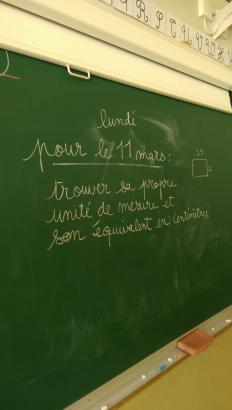 lundi
pour le 11 mars :
25
trouver sa propre
unité de mesure et
son équivalent en centimètres